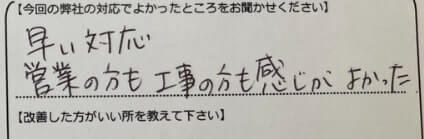 【今回の弊社の対応でよかったところをお聞かせください】
早い対応
営業の方も工事の方も感じがよかった
【改善した方がいい所を教えて下さい】